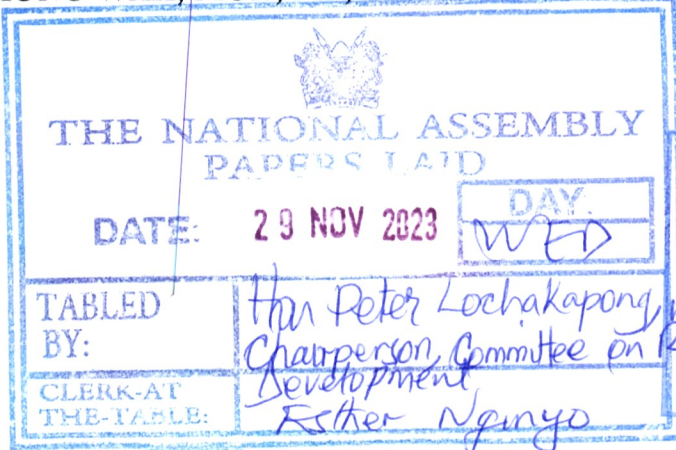 THE NATIONAL ASSEMBLY
PAPERS LAID
DATE: 29 NOV 2023
DAY.
WED
TABLED BY:
Hon Peter Lochakapong,
Chairperson, Committee on
Development
CLERK-AT THE-TABLE:
Esther Nginyo